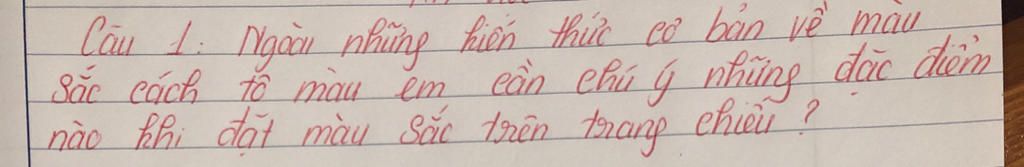 Câu 1: Ngoài những kiến thức cơ bản về màu
sắc cách tô màu em cần chú ý những đặc điểm
nào khi đặt màu sắc trên trang chiếu?